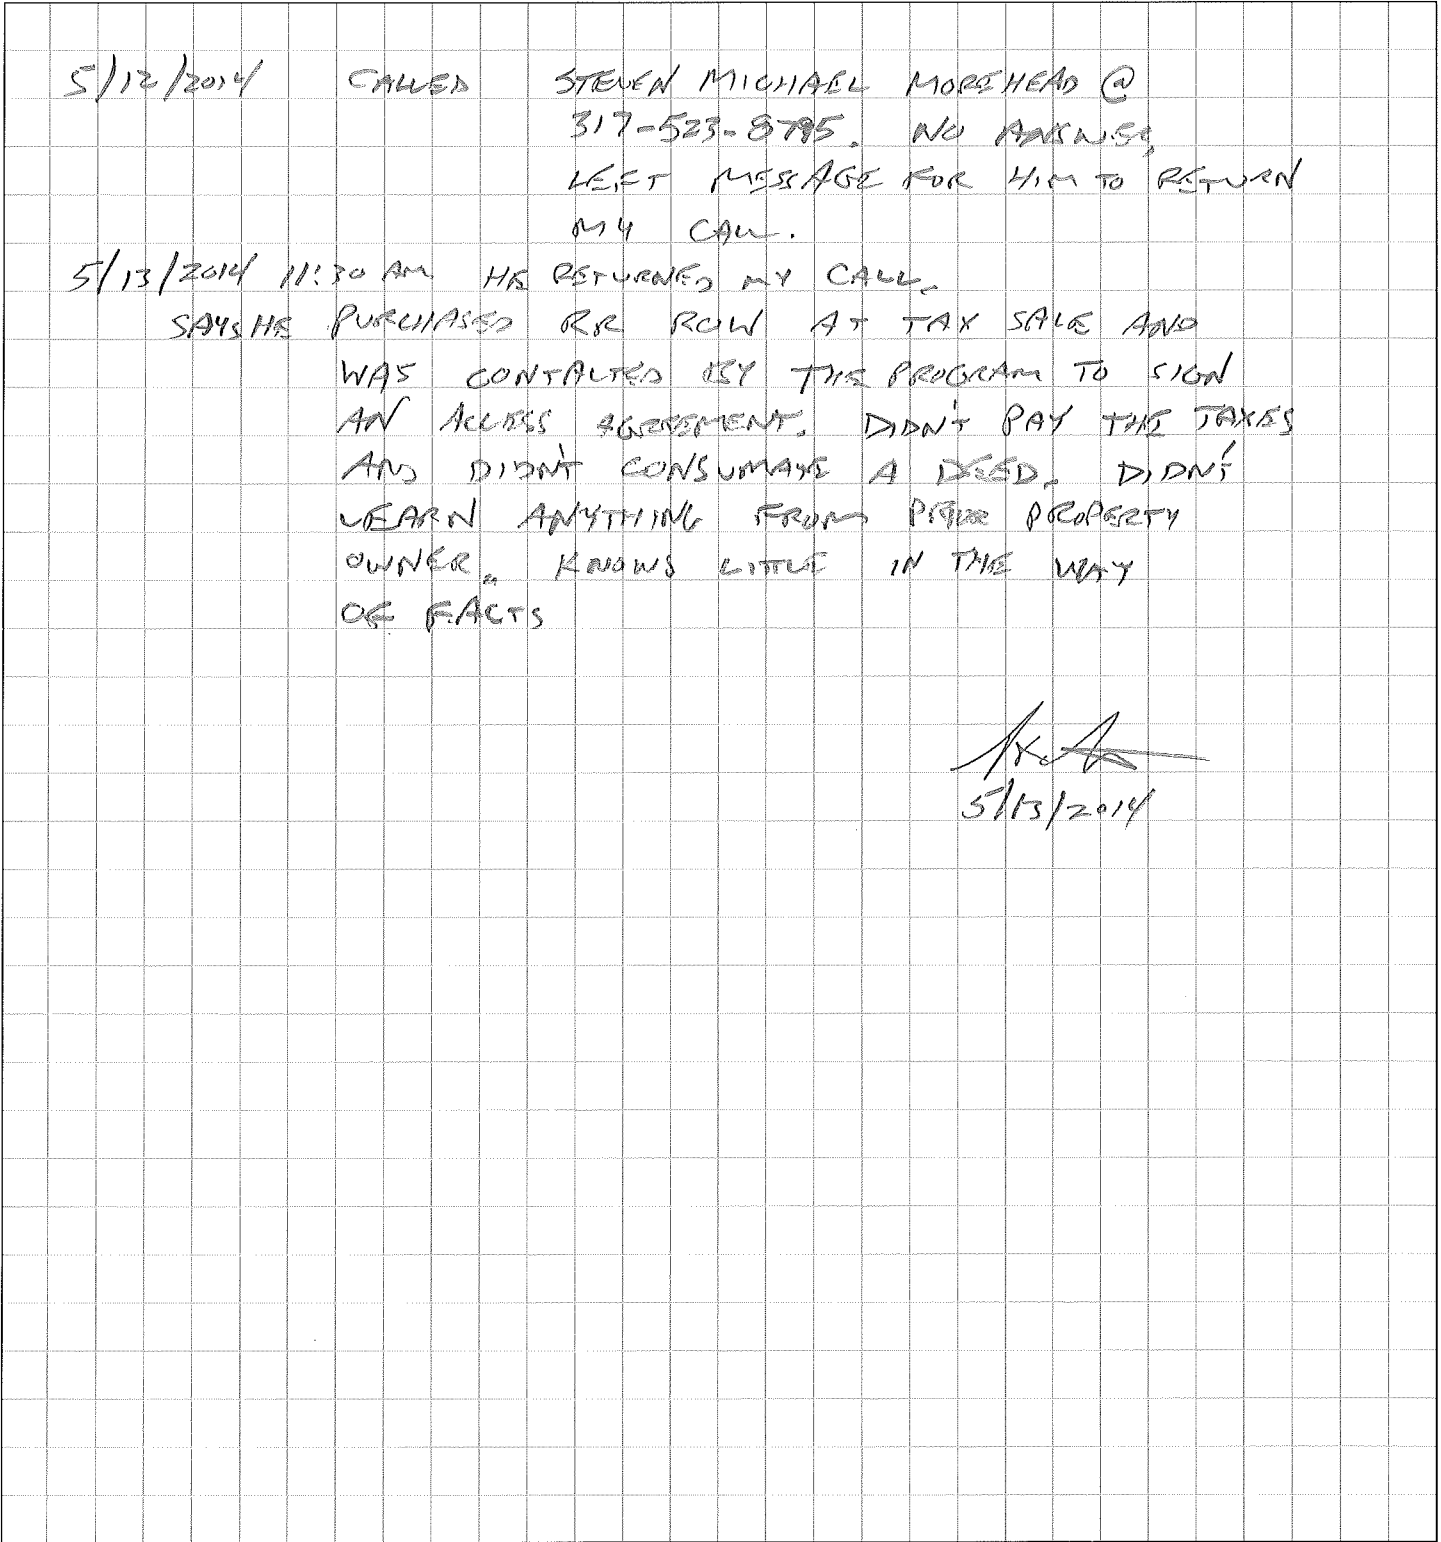 5/12/2014 CALLED STEVEN MICHAEL MOREHEAD @
317-523-8795. NO ANSWER,
LEFT MESSAGE FOR HIM TO RETURN
MY CALL.
5/13/2014 11:30 AM HE RETURNED MY CALL.
SAYS HE PURCHASED RR ROW AT TAX SALE AND
WAS CONTACTED BY THE PROGRAM TO SIGN
AN ACCESS AGREEMENT. DIDN'T PAY THE TAXES
AND DIDN'T CONSUMATE A DEED. DIDN'T
LEARN ANYTHING FROM PRIOR PROPERTY
OWNER. KNOWS LITTLE IN THE WAY
OF FACTS
5/13/2014